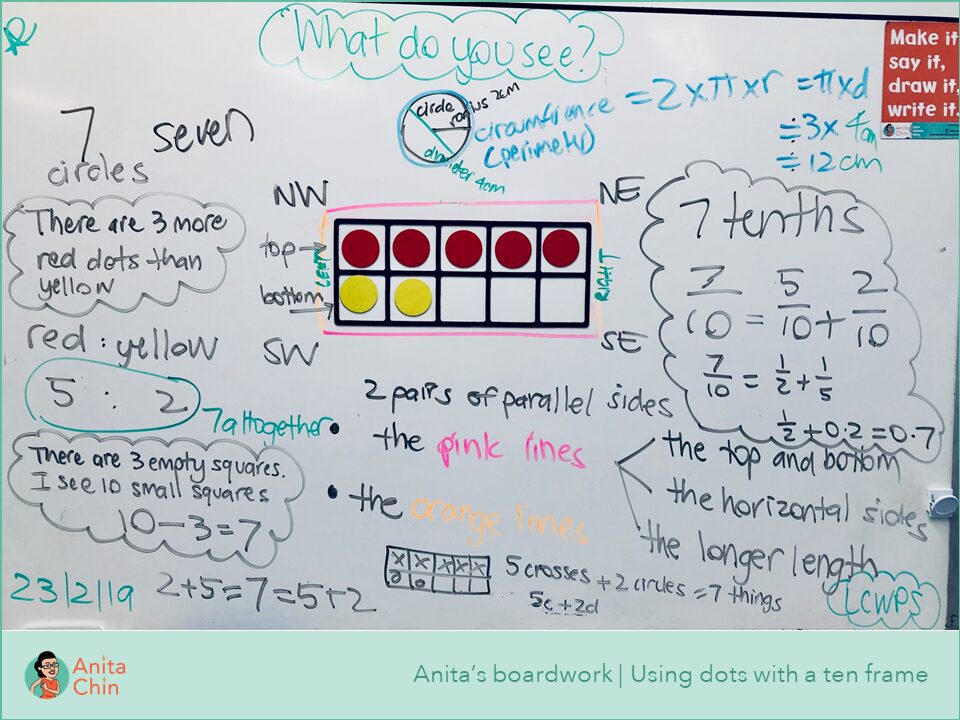 What do you see?
Make it,
say it,
draw it,
write it.
7 seven
circles
circle
radius 2cm
diameter 4cm
circumfrence
(perimeter)
= 2 x π x r = π x d
= 3 x 4cm
= 12 cm
NW
NE
There are 3 more
red dots than
yellow
top →
bottom →
LEFT
RIGHT
SW
SE
7 tenths
7/10 = 5/10 + 2/10
7/10 = 1/2 + 1/5
1/2 + 0.2 = 0.7
red : yellow
5 : 2
7 altogether
There are 3 empty squares.
I see 10 small squares
10 - 3 = 7
2 pairs of parallel sides
• the pink lines
the top and bottom
the horizontal sides
the longer length
• the orange lines
x x x x x
o o
5 crosses + 2 circles = 7 things
5c + 2d
23/2/19
2+5=7=5+2
LCWPS
Anita
Chin
Anita's boardwork | Using dots with a ten frame